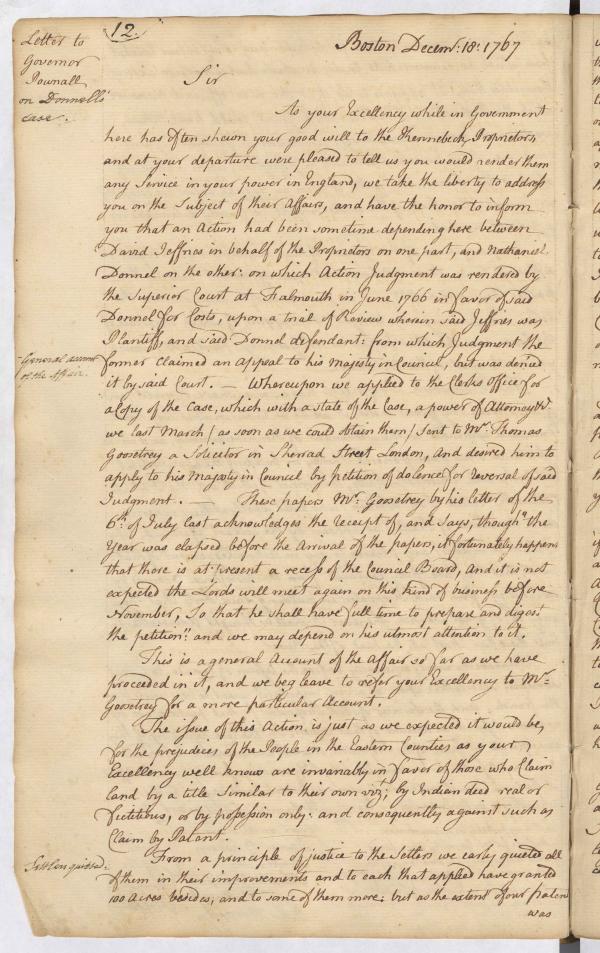 12.
Letter to
Governor
Pownall
on Donnells
case.
Boston Decemr: 18: 1767
Sir
As your Excellency while in Government
here has often shewn your good will to the Kennebeck Proprietors
and at your departure were pleased to tell us you would render them
any Service in your power in England, we take the liberty to address
you on the Subject of their Affairs, and have the honor to inform
you that an Action had been sometime depending here between
David Jeffries in behalf of the Proprietors on one part, and Nathaniel
Donnel on the other: on which Action Judgment was rendered by
the Superior Court at Falmouth in June 1766 in favor of said
Donnel for Costs, upon a trial of Review wherein said Jeffries was
Plantiff, and said Donnel defendant: from which Judgment the
General account
of the affair.
former claimed an Appeal to his Majesty in Council, but was denied
it by said Court. — Whereupon we applied to the Clerks Office for
a Copy of the Case, which with a state of the Case, a power of Attorney &c.
we last March / as soon as we could obtain them / sent to Mr. Thomas
Goosetrey a Solicitor in Sherrad Street London, and desired him to
apply to his Majesty in Council by petition of dolence for reversal of said
Judgment. — These papers Mr. Goosetrey by his letter of the
6th. of July last acknowledges the receipt of, and says, though the
Year was elapsed before the Arrival of the papers, it fortunately happens
that there is at present a recess of the Council Board, and it is not
expected the Lords will meet again on this kind of business before
November, So that he shall have full time to prepare and digest
the petition: and we may depend on his utmost attention to it.
This is a general Account of the Affair so far as we have
proceeded in it, and we beg leave to refer your Excellency to Mr.
Goosetrey for a more particular Account.
The issue of this Action is just as we expected it would be,
for the prejudices of the People in the Eastern Counties as your
Excellency well knows are invariably in favor of those who Claim
land by a title Similar to their own viz; by Indian deed real or
fictitious, or by possession only: and consequently against such as
Claim by Patent.
Settlers quieted.
From a principle of justice to the Setlers we early quieted all
of them in their improvements and to each that applied have granted
100 Acres besides, and to some of them more: but as the extent of our paten
was